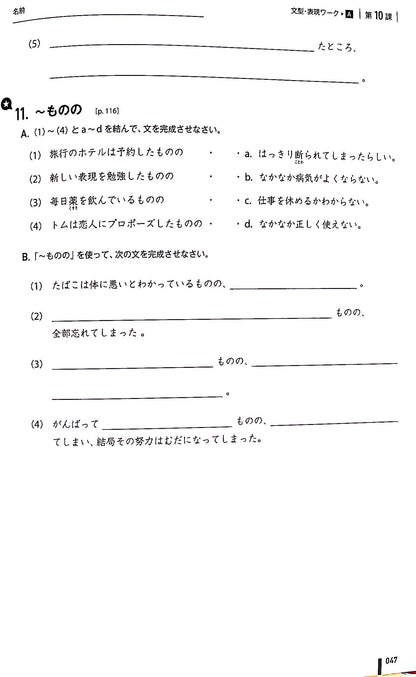 名前
文型・表現ワーク・A 第10課
(5) たところ、
。
★
11. ～ものの [p. 116]
A. (1)～(4) とa～dを結んで、文を完成させなさい。
(1) 旅行のホテルは予約したものの ・ ・a. はっきり断られてしまったらしい。
ことわ
(2) 新しい表現を勉強したものの ・ ・b. なかなか病気がよくならない。
(3) 毎日薬を飲んでいるものの ・ ・c. 仕事を休めるかわからない。
くすり
(4) トムは恋人にプロポーズしたものの ・ ・d. なかなか正しく使えない。
B. 「～ものの」を使って、次の文を完成させなさい。
(1) たばこは体に悪いとわかっているものの、 。
(2) ものの、
全部忘れてしまった 。
(3) ものの、
。
(4) がんばって ものの、
てしまい、結局その努力はむだになってしまった。
047